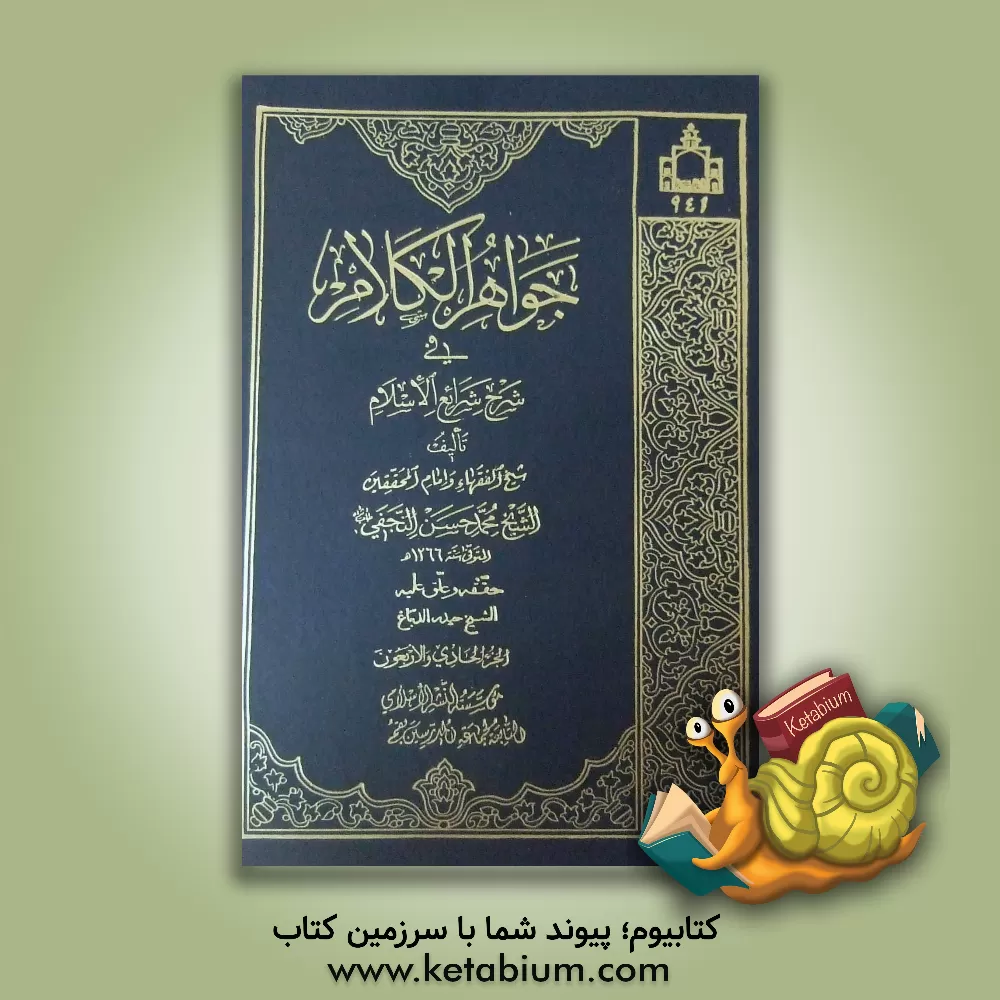 ۹٤۱
جَوَاهِرُ الكَلَامِ
في
شَرْحِ شَرَائِعِ الأِسْلَامِ
تَأليفُ
شيخ الفقهاء وامام المحققين
الشَّيْخ مُحَمَّد حَسَن النَّجَفِي
المتوفى سنة ۱۲٦٦ هـ
حققه وعلق عليه
الشيخ حيدر الدباغ
الجزء الحادي والأربعون
مؤسسة النشر الإسلامي
التابعة لجماعة المدرسين بقم
Ketabium
کتابیوم؛ پیوند شما با سرزمین کتاب
www.ketabium.com